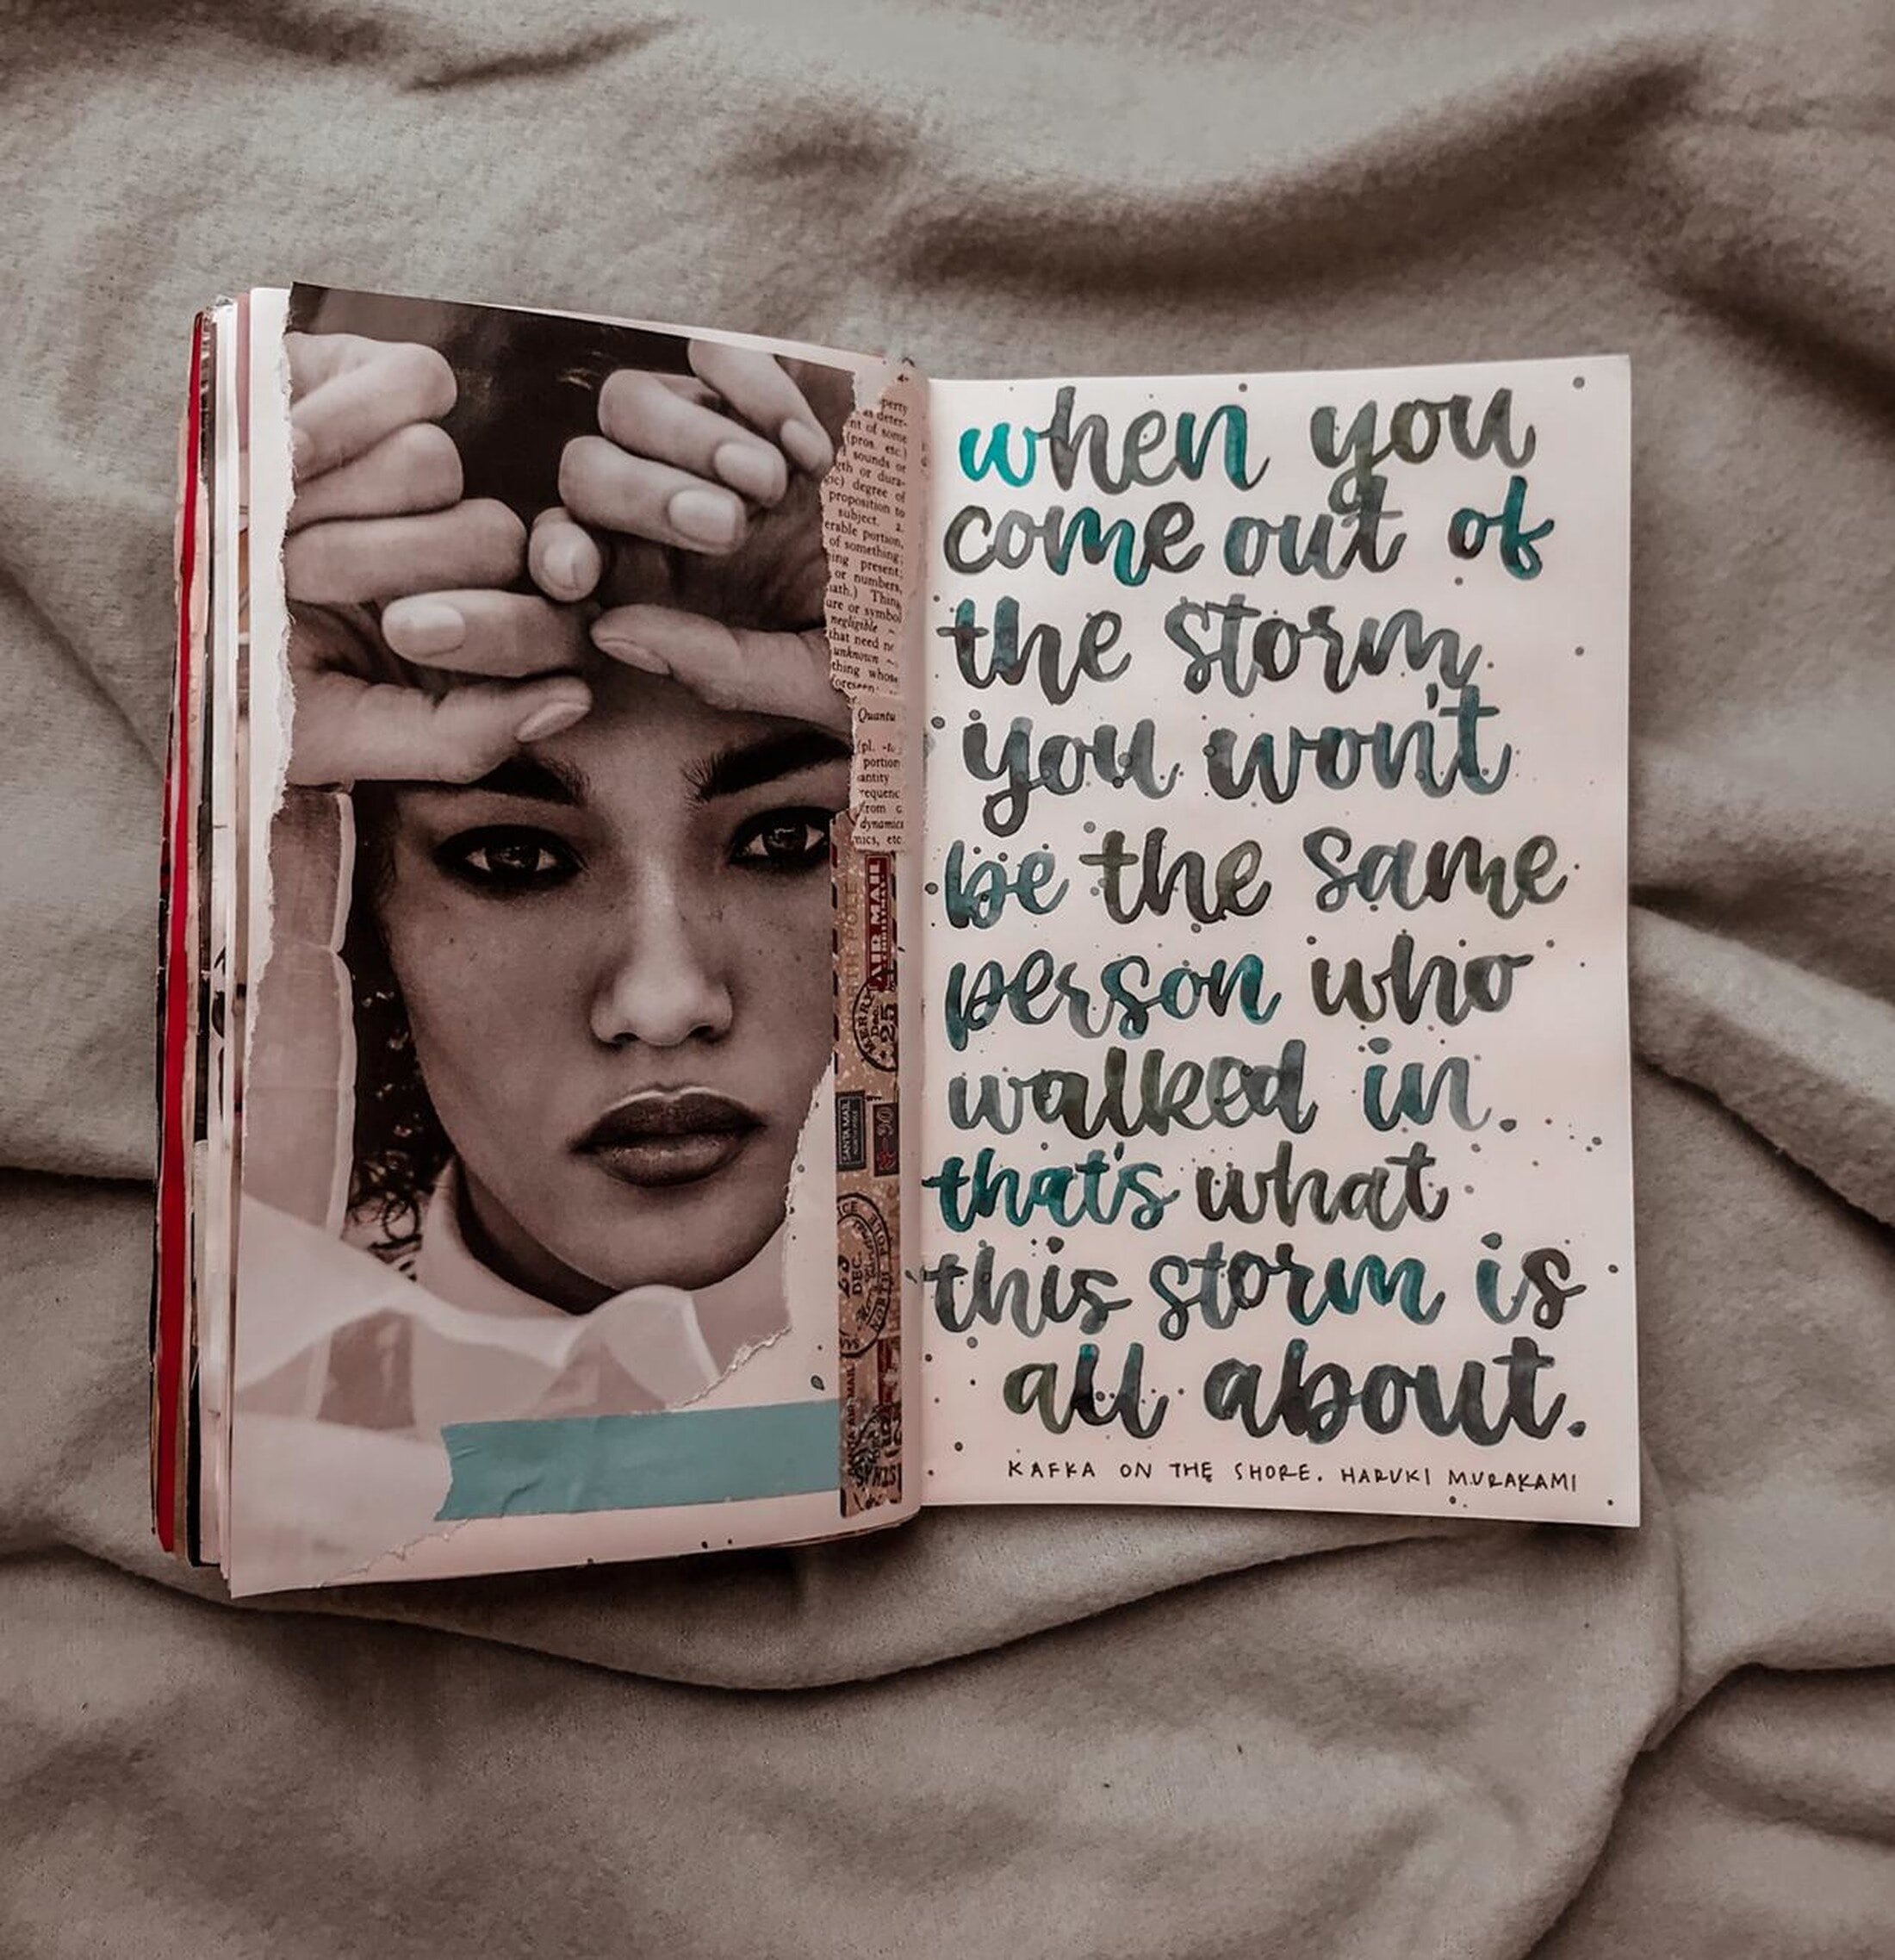 perty
as deter-
nt of some
(pros. etc.)
sounds or
gth or dura-
gic) degree of
proposition to
subject. 2.
erable portion,
of something;
ing present;
or numbers,
math.) Thing
ure or symbol
negligible ~
that need no
unknown ~
thing whose
foreseen
Quantu
(pl. -ta
portion
antity
requenc
from c
dynamics
nics, etc
AIR MAIL
MERRY
Dec.
25
SANTA MAIL
DEC.
when you
come out of
the storm,
you won't
be the same
person who
walked in.
that's what
this storm is
all about.
KAFKA ON THE SHORE. HARUKI MURAKAMI